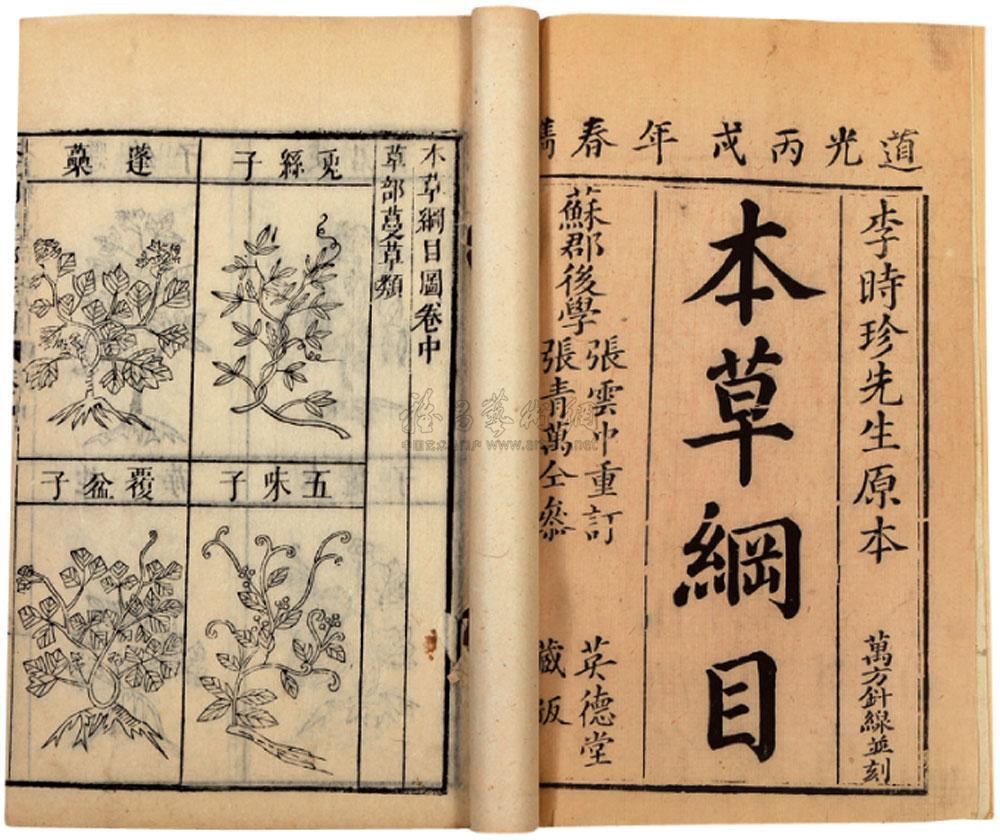 道光丙戌年春鐫
李時珍先生原本
萬方針線並刻
本草綱目
蘇郡後學
張雲中重訂
張青萬仝參
英德堂
藏版
本草綱目圖卷中
草部蔓草類
兎絲子
蓬蘽
五味子
覆盆子